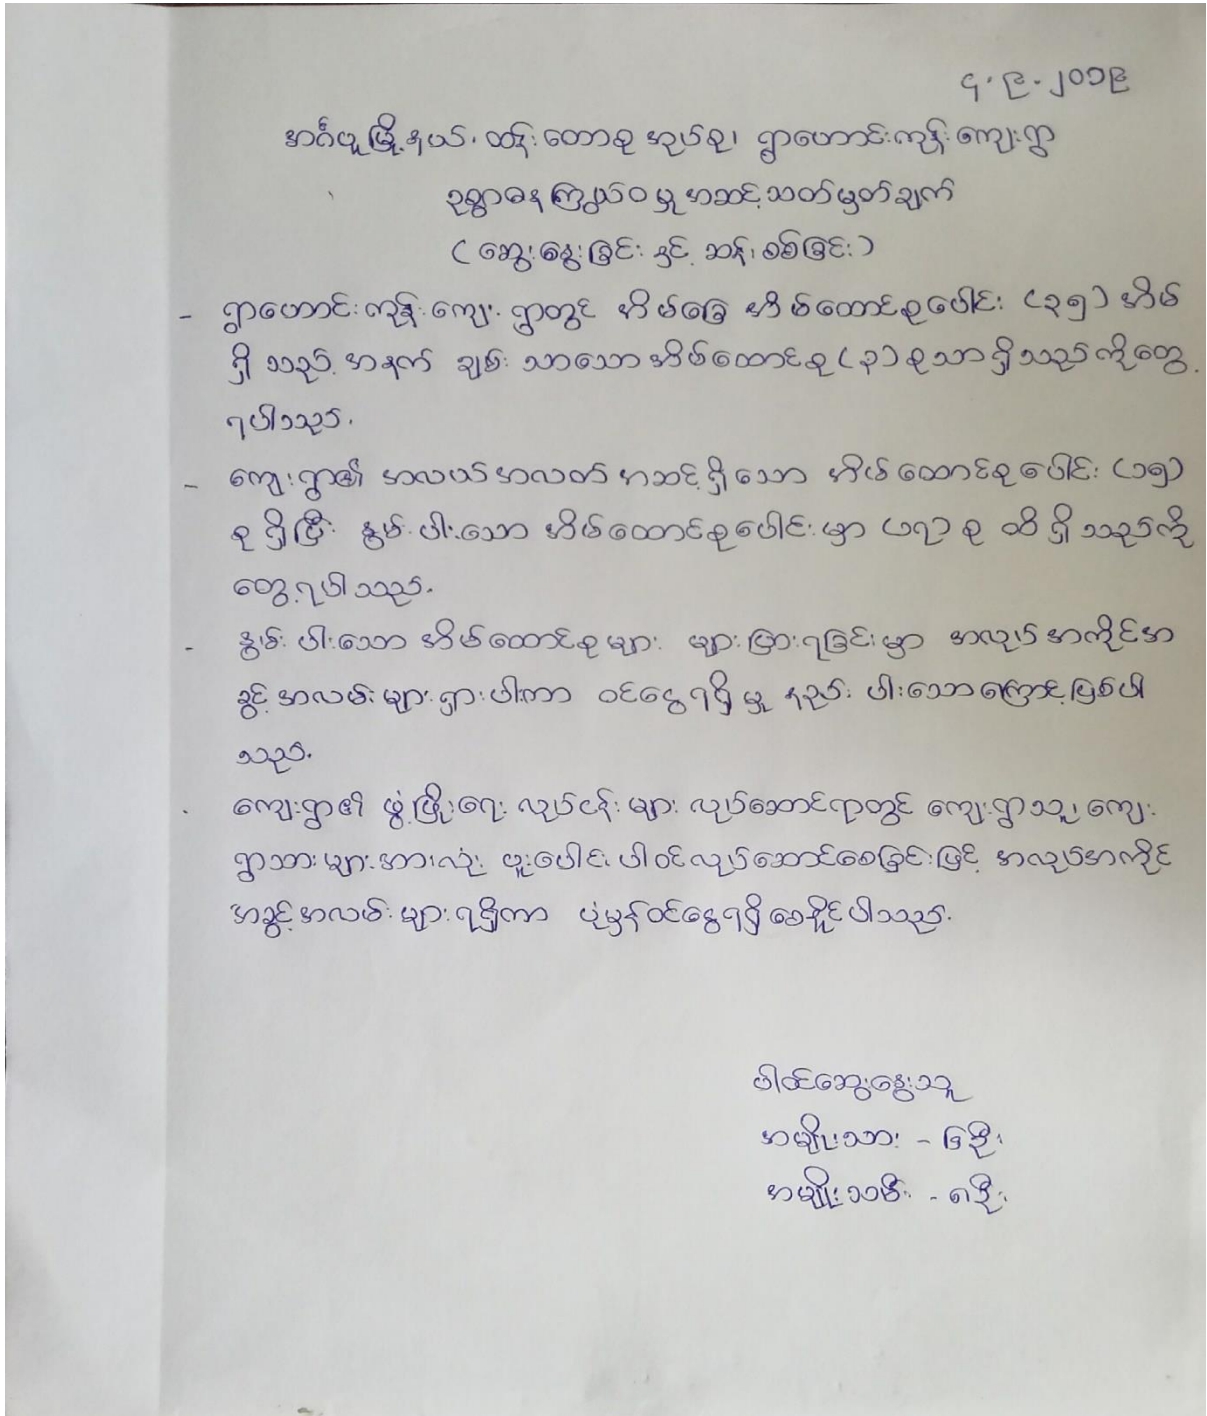 ၄.၉.၂၀၁၉
အင်္ဂပူမြို့နယ်၊ ထန်းတောစုအုပ်စု၊ ရွာဟောင်းကုန်းကျေးရွာ
ဥစ္စာဓနကြွယ်ဝမှုအဆင့်သတ်မှတ်ချက်
(ဆွေးနွေးခြင်းနှင့် ဆန်းစစ်ခြင်း)
- ရွာဟောင်းကုန်းကျေးရွာတွင် အိမ်ခြေ အိမ်ထောင်စုပေါင်း (၃၅) အိမ်
ရှိသည့်အနက် ချမ်းသာသောအိမ်ထောင်စု (၃) စုသာရှိသည်ကိုတွေ့
ရပါသည်.
- ကျေးရွာ၏ အလယ်အလတ်အဆင့်ရှိသော အိမ်ထောင်စုပေါင်း (၁၅)
စုရှိပြီး နွမ်းပါးသော အိမ်ထောင်စုပေါင်းမှာ (၁၇) စု ထိရှိသည်ကို
တွေ့ရပါသည်.
- နွမ်းပါးသော အိမ်ထောင်စုများ များပြားရခြင်းမှာ အလုပ်အကိုင်အ
ခွင့်အလမ်းများရှားပါးကာ ဝင်ငွေရရှိမှု နည်းပါးသောကြောင့်ဖြစ်ပါ
သည်.
- ကျေးရွာ၏ ဖွံ့ဖြိုးရေးလုပ်ငန်းများ လုပ်ဆောင်ရာတွင် ကျေးရွာသူ၊ ကျေး
ရွာသားများအားလုံး ပူးပေါင်းပါဝင်လုပ်ဆောင်စေခြင်းဖြင့် အလုပ်အကိုင်
အခွင့်အလမ်းများရရှိကာ ပုံမှန်ဝင်ငွေရရှိစေနိုင်ပါသည်.
ပါဝင်ဆွေးနွေးသူ
အမျိုးသား - ၆ဦး
အမျိုးသမီး - ၈ဦး